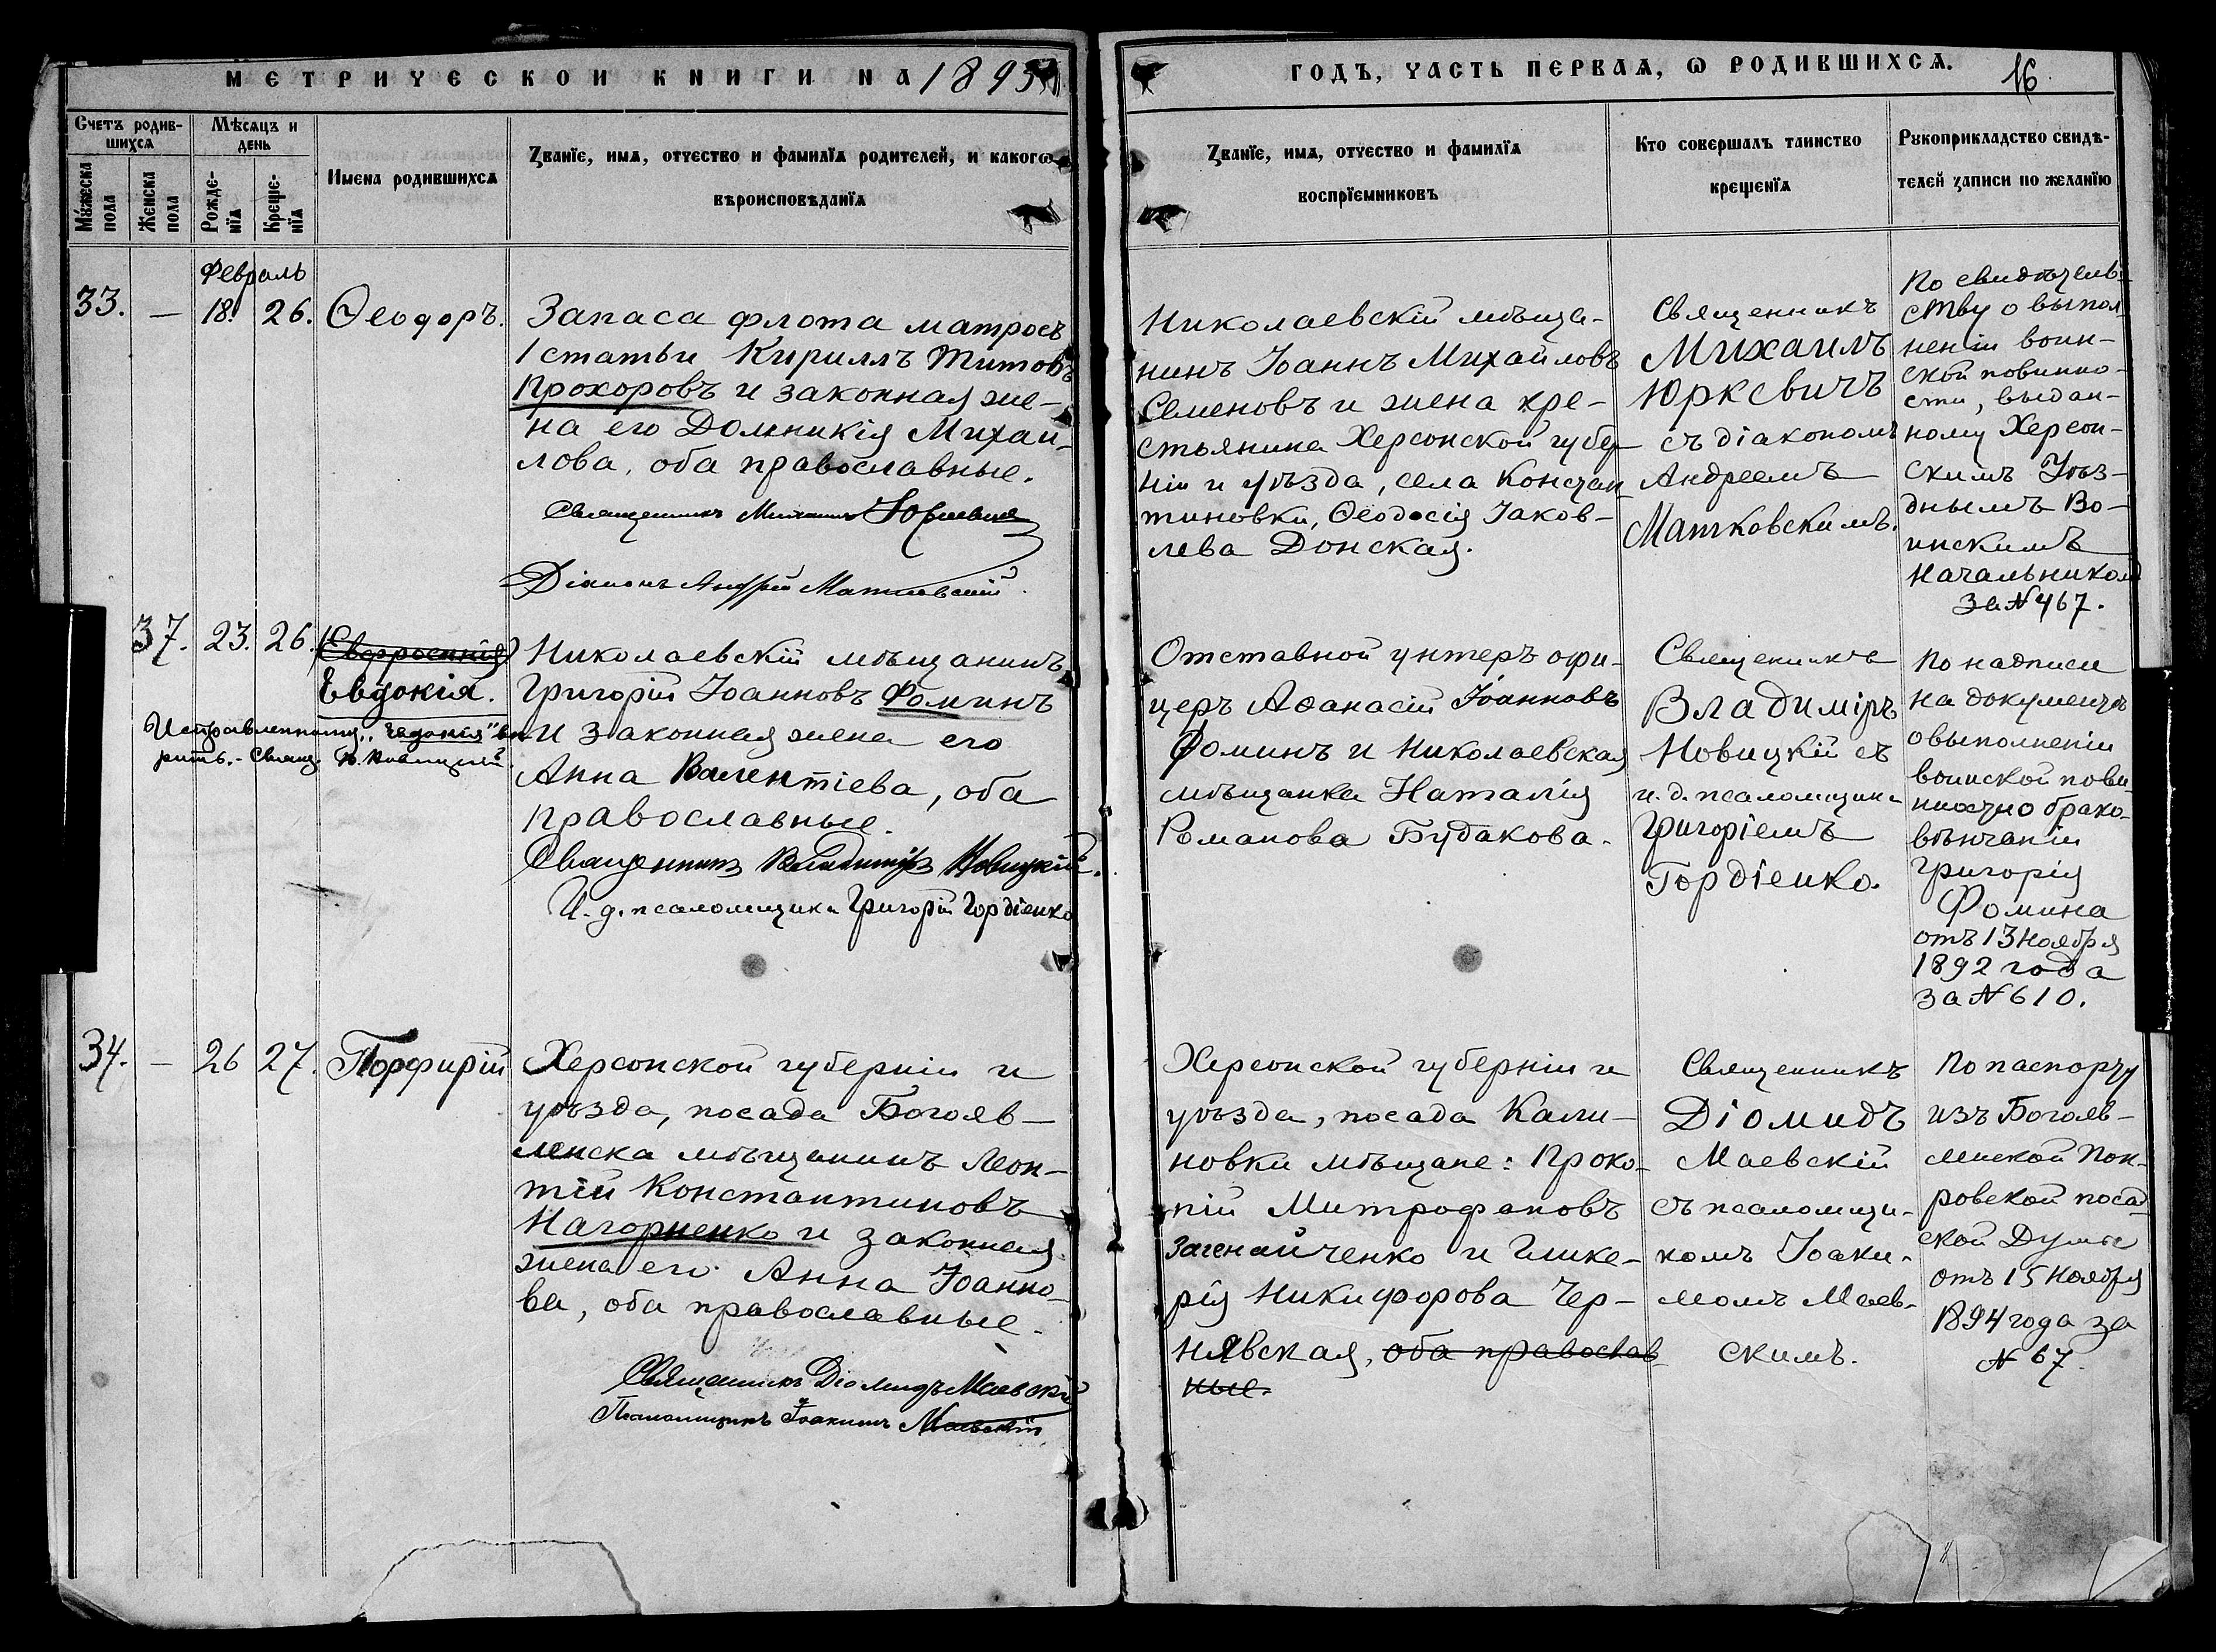 МЕТРИЧЕСКОЙ КНИГИ НА 1895
ГОДЪ, ЧАСТЬ ПЕРВАѦ, Ѡ РОДИВШИХСѦ.
16
Счетъ родив-
шихсѧ
Мѣсѧцъ и
день
Мꙋжеска
пола
Женска
пола
Рожде-
нїѧ
Креще-
нїѧ
Имена родившихсѧ
Званїе, имѧ, отчество и фамилїѧ родителей, и какогѡ
вѣроисповѣданїѧ
Званїе, имѧ, отчество и фамилїѧ
воспрїемниковъ
Кто совершалъ таинство
крещенїѧ
Рꙋкоприкладство свидѣ-
телей записи по желанїю
Февраль
33. — 18. 26. Ѳеодоръ.
Запаса флота матросъ
1 статьи Кириллъ Титовъ
Прохоровъ и законная же-
на его Домникія Михаи-
лова, оба православные.
Священникъ Михаилъ Юркевичъ
Діаконъ Андрей Матковскій.
Николаевскій мѣща-
нинъ Іоаннъ Михайловъ
Семеновъ и жена кре-
стьянина Херсонской губер-
ніи и уѣзда, села Констан-
тиновки, Ѳеодосія Іаков-
лева Донская.
Священникъ
Михаилъ
Юркевичъ
съ діакономъ
Андреемъ
Матковскимъ.
По свидѣтель-
ству о выпол-
неніи воин-
ской повинно-
сти, выдан-
ному Херсон-
скимъ Уѣз-
днымъ Во-
инскимъ
Начальникомъ
за № 467.
37. 23. 26. (Евфросинія)
Евдокія.
Исправленному „Евдокія" вѣ-
рить. - Свящ. В. Новицкій.
Николаевскій мѣщанинъ
Григорій Іоанновъ Фоминъ
и законная жена его
Анна Валентіева, оба
православные.
Священникъ Владиміръ Новицкій.
И. д. псаломщика Григорій Гордіенко
Отставной унтеръ офи-
церъ Аѳанасій Іоанновъ
Фоминъ и Николаевская
мѣщанка Наталія
Романова Будакова.
Священникъ
Владиміръ
Новицкій съ
и. д. псаломщика
Григоріемъ
Гордіенко.
По надписи
на документѣ
о выполненіи
воинской пови-
нности о брако-
вѣнчаніи
Григорія
Фомина
отъ 13 Ноября
1892 года
за № 610.
34. — 26 27. Порфирій
Херсонской губерніи и
уѣзда, посада Богояв-
ленска мѣщанинъ Леон-
тій Константиновъ
Нагорненко и законная
жена его Анна Іоанно-
ва, оба православные.
Священникъ Діомидъ Маевскій
Псаломщикъ Іоакимъ Маевскій
Херсонской губерніи и
уѣзда, посада Кали-
новки мѣщане: Проко-
пій Митрофановъ
Загенайченко и Глике-
рія Никифорова Чер-
нявская, оба православ
ные.
Священникъ
Діомидъ
Маевскій
съ псаломщи-
комъ Іоаки-
момъ Маев-
скимъ.
По паспорту
изъ Богояв-
ленской Пок-
ровской посад-
ской Думы
отъ 15 Ноября
1894 года за
№ 67.